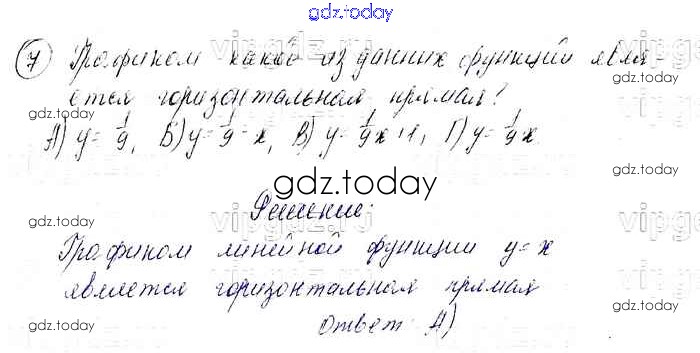 gdz.today
7 Графиком какой из данных функций явля-
ется горизонтальная прямая?
А) y= 1/9, Б) y= 1/9 - x, В) y= 1/9 x+1, Г) y= 1/9 x
gdz.today
Решение:
Графиком линейной функции y=x
является горизонтальная прямая
Ответ: А)
gdz.today
gdz.today
gdz.today
gdz.today
gdz.today
gdz.today
gdz.today